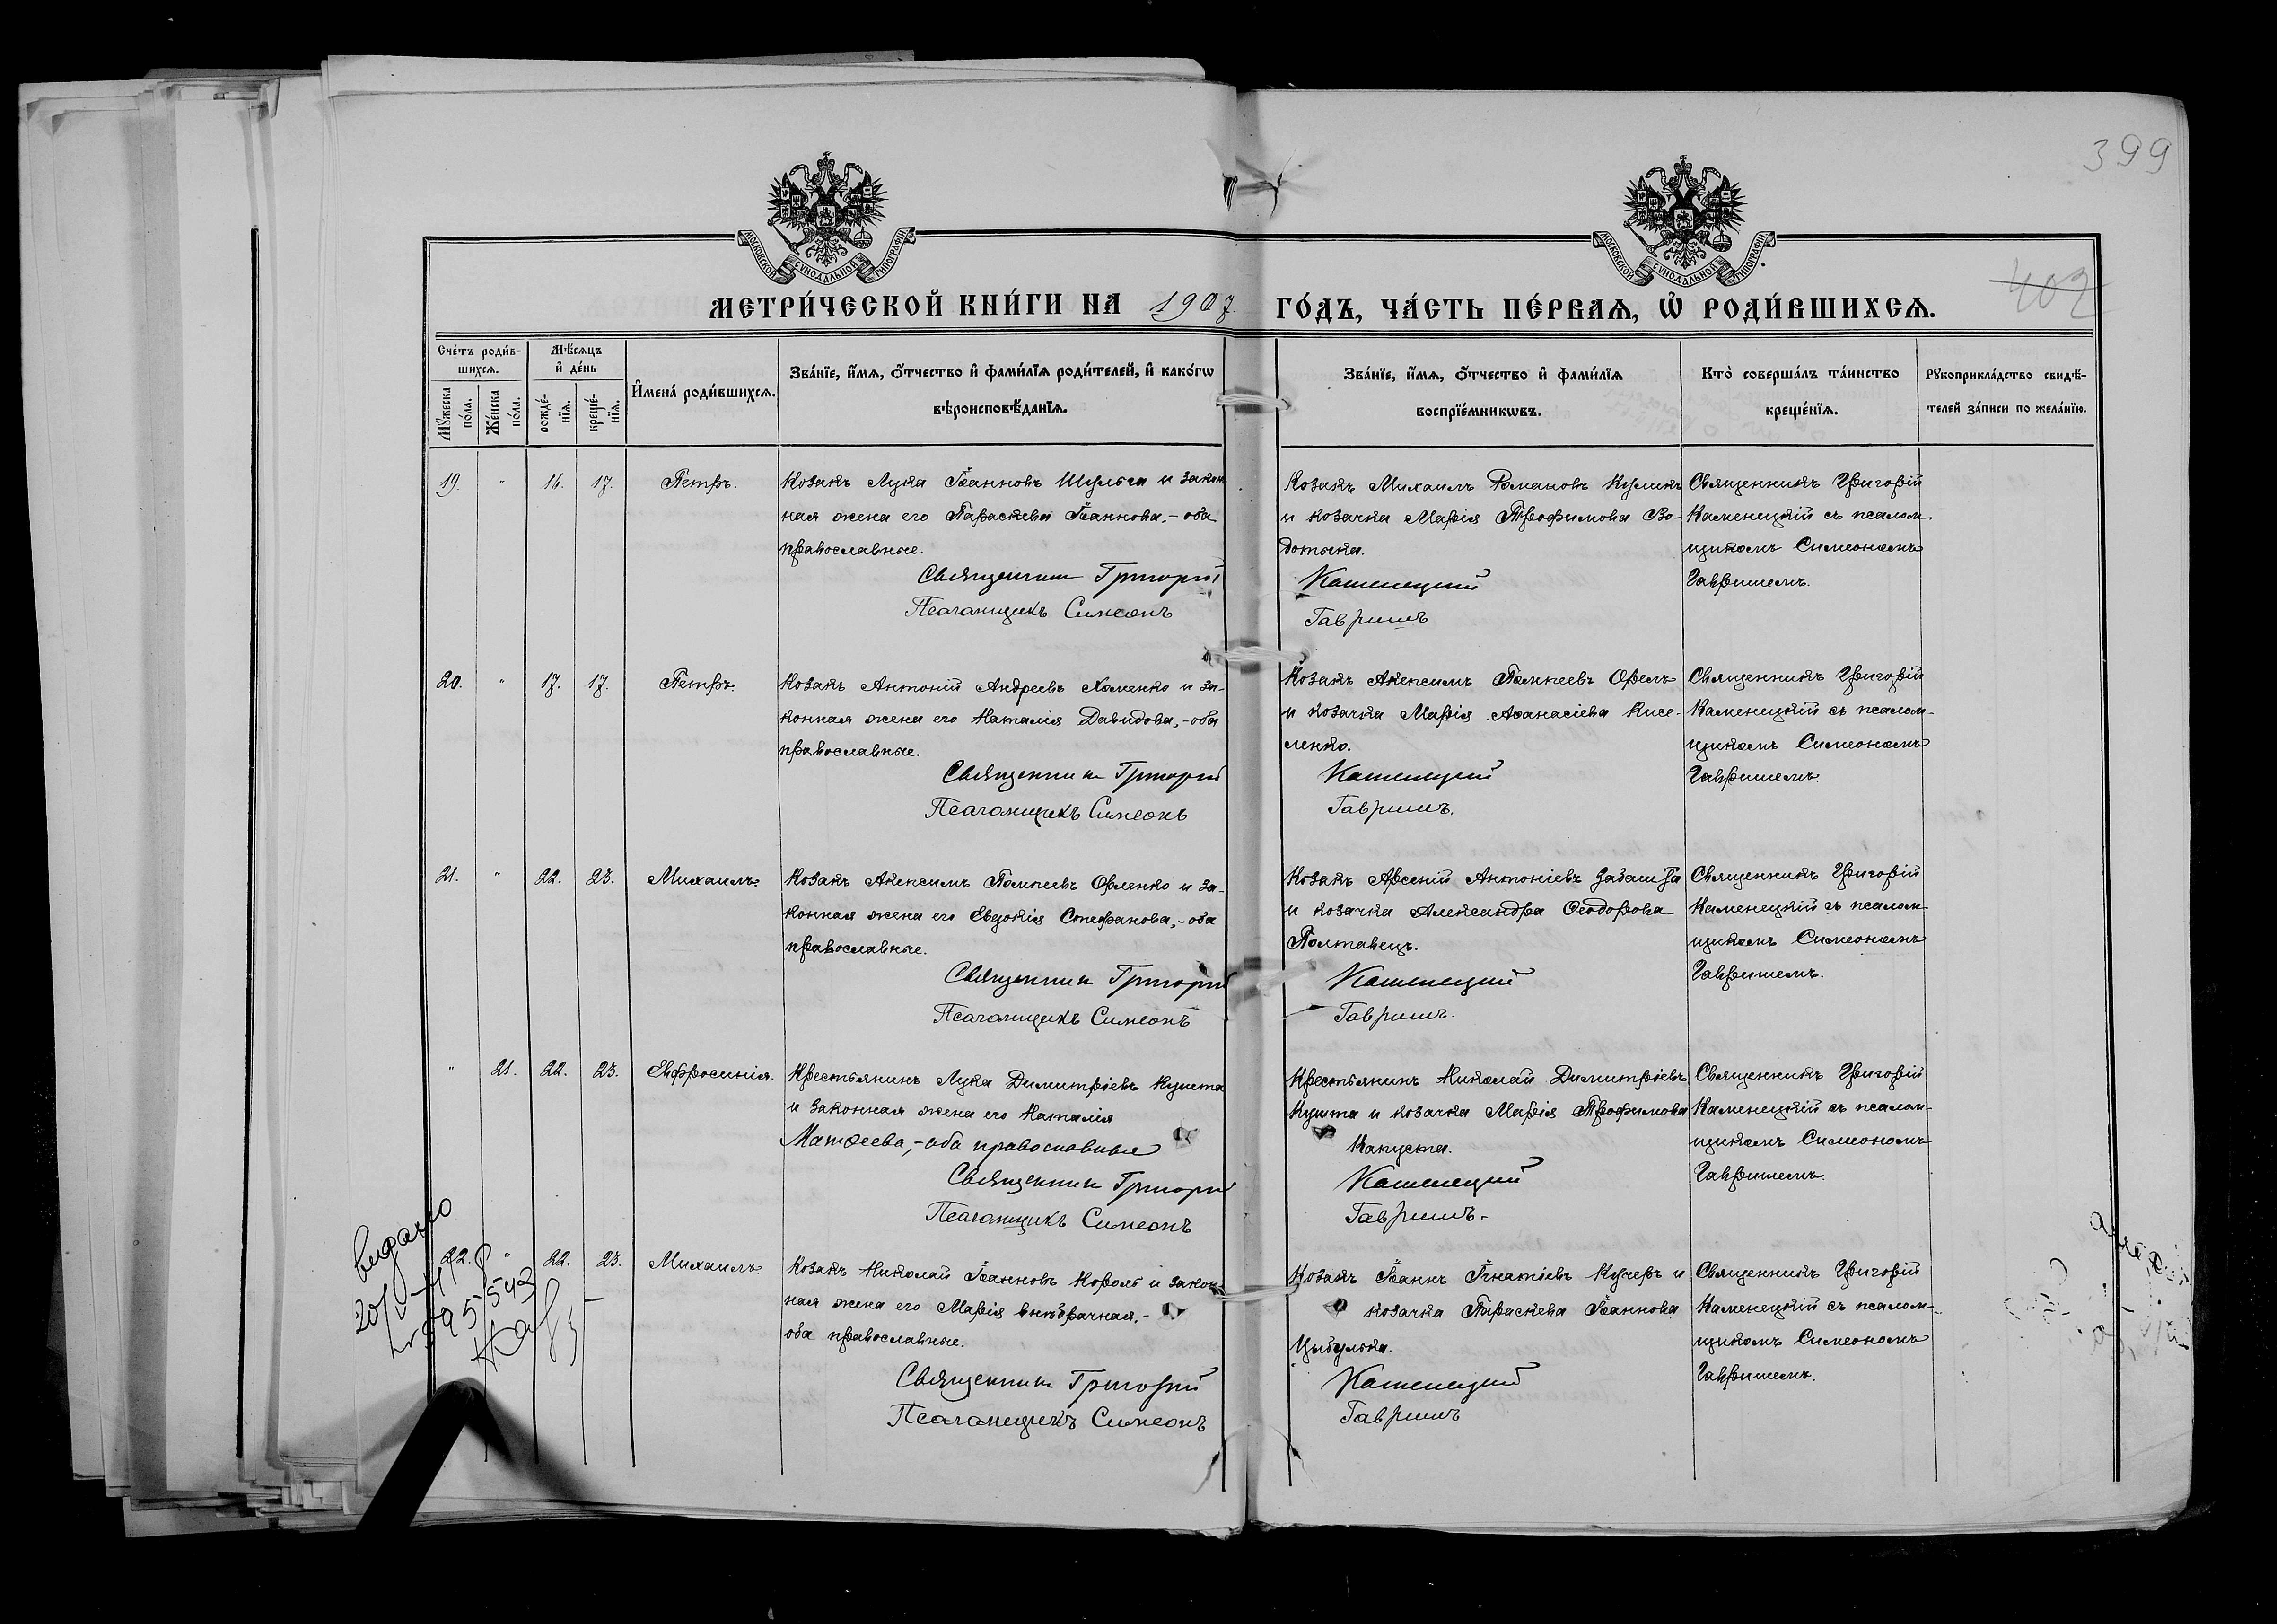 399
МОСКОВСКОЙ СУНОДАЛЬНОЙ ТИПОГРАФІИ
МОСКОВСКОЙ СУНОДАЛЬНОЙ ТИПОГРАФІИ
МЕТРИ́ЧЕСКОЙ КНИ́ГИ НА 1907 ГО́ДЪ, ЧА́СТЬ ПЕ́РВАѦ, Ѡ҆ РОДИ́ВШИХСѦ.
402
Сче́тъ роди́в-
шихсѧ.
Мѣ́сѧцъ
и҆ де́нь
Мꙋ́жеска по́ла.
Же́нска по́ла.
рожде́-
нїѧ.
креще́-
нїѧ.
И҆мена̀ роди́вшихсѧ.
Зва́нїе, и҆́мѧ, ѻ҆́тчество и҆ фами́лїѧ роди́телей, и҆ како́гѡ
вѣроисповѣ́данїѧ.
Зва́нїе, и҆́мѧ, ѻ҆́тчество и҆ фами́лїѧ
воспрїе́мникѡвъ.
Кто̀ соверша́лъ та́инство
креще́нїѧ.
Рꙋкоприкла́дство свидѣ́-
телей за́писи по жела́нїю.
19. " 16. 17. Петръ.
Козакъ Лука Іоанновъ Шульга и закон
ная жена его Параскева Іоаннова,- оба
православные.
Священник Григорій
Псаломщикъ Симеонъ
Козакъ Михаилъ Романовъ Куликъ
и козачка Марія Трофимова Во-
дотыка.
Каменецкий
Гавришъ
Священникъ Григорій
Каменецкій съ псалом-
щикомъ Симеономъ
Гавришемъ.
20. " 17. 17. Петръ.
Козакъ Антоній Андреевъ Хоменко и за-
конная жена его Наталія Давидова,- оба
православные.
Священник Григорій
Псаломщикъ Симеонъ
Козакъ Алексимъ Помпеевъ Орелъ
и козачка Марія Аѳанасіева Кисе-
ленко.
Каменецкий
Гавришъ.
Священникъ Григорій
Каменецкій съ псалом-
щикомъ Симеономъ
Гавришемъ.
21. " 22. 23. Михаилъ.
Козакъ Алексимъ Помпеевъ Орленко и за-
конная жена его Евдокія Стефанова,- оба
православные.
Священник Григорій
Псаломщикъ Симеонъ
Козакъ Арсеній Антоніевъ Забашта
и козачка Александра Ѳеодорова
Полтавецъ.
Каменецкий
Гавришъ.
Священникъ Григорій
Каменецкій съ псалом-
щикомъ Симеономъ
Гавришемъ.
" 21. 22. 23. Евфросинія.
Крестьянинъ Лука Димитріевъ Кушта
и законная жена его Наталія
Матѳеева,- оба православные
Священник Григорій
Псаломщикъ Симеонъ
Крестьянинъ Николай Димитріевъ
Кушта и козачка Марія Трофимова
Капуста.
Каменецкий
Гавришъ.
Священникъ Григорій
Каменецкій съ псалом-
щикомъ Симеономъ
Гавришемъ.
видано
22. " 22. 23. Михаилъ.
Козакъ Николай Іоанновъ Король и закон-
ная жена его Марія внѣбрачная,-
оба православные.
Священник Григорій
Псаломщикъ Симеонъ
Козакъ Іоаннъ Игнатіевъ Кучеръ и
козачка Параскева Іоаннова
Цыбулька.
Каменецкий
Гавришъ
Священникъ Григорій
Каменецкій съ псалом-
щикомъ Симеономъ
Гавришемъ.